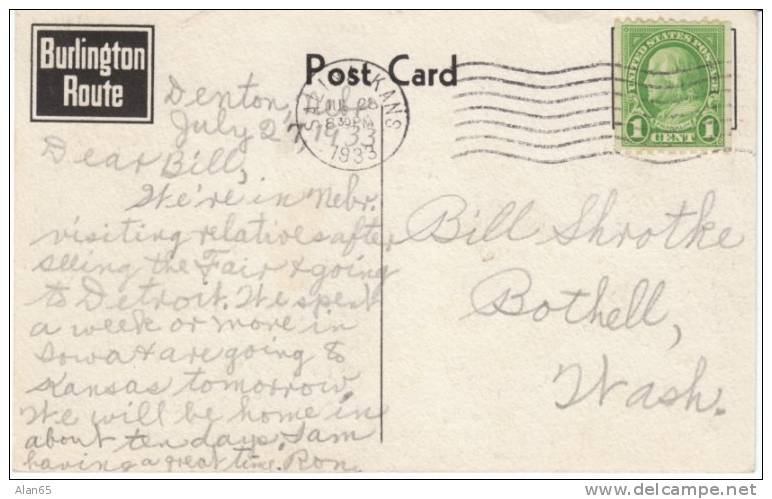 Burlington
Route
Post Card
KANS
JUL 28
8 30 PM
1933
UNITED STATES POSTAGE
1 CENT 1
Denton, Nebr.
July 27, 1933
Dear Bill,
We're in Nebr.
visiting relatives after
seeing the Fair & going
to Detroit. We spent
a week or more in
Iowa & are going to
Kansas tomorrow.
We will be home in
about ten days. I am
having a great time. Ron.
Bill Shrotke
Bothell,
Wash.
Alan65
www.delcampe.net